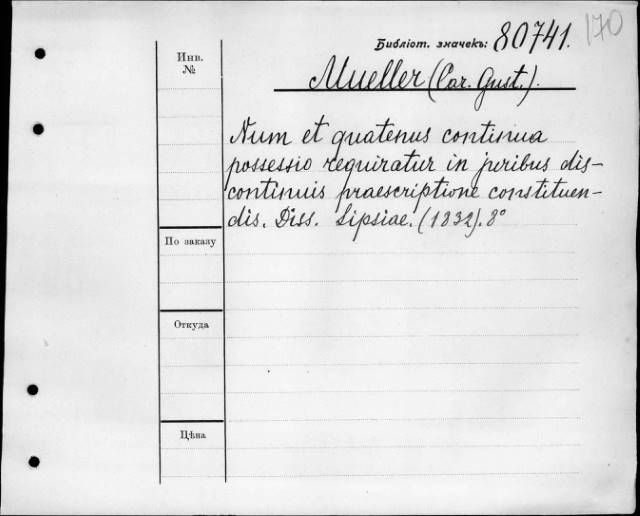 170
Библіот. значекъ: 80741.
Инв.
№
Mueller (Car. Gust.).
Num et quatenus continua
possessio requiratur in juribus dis-
continuis praescriptione constituen-
dis. Diss. Lipsiae. (1832). 8°
По заказу
Откуда
Цѣна